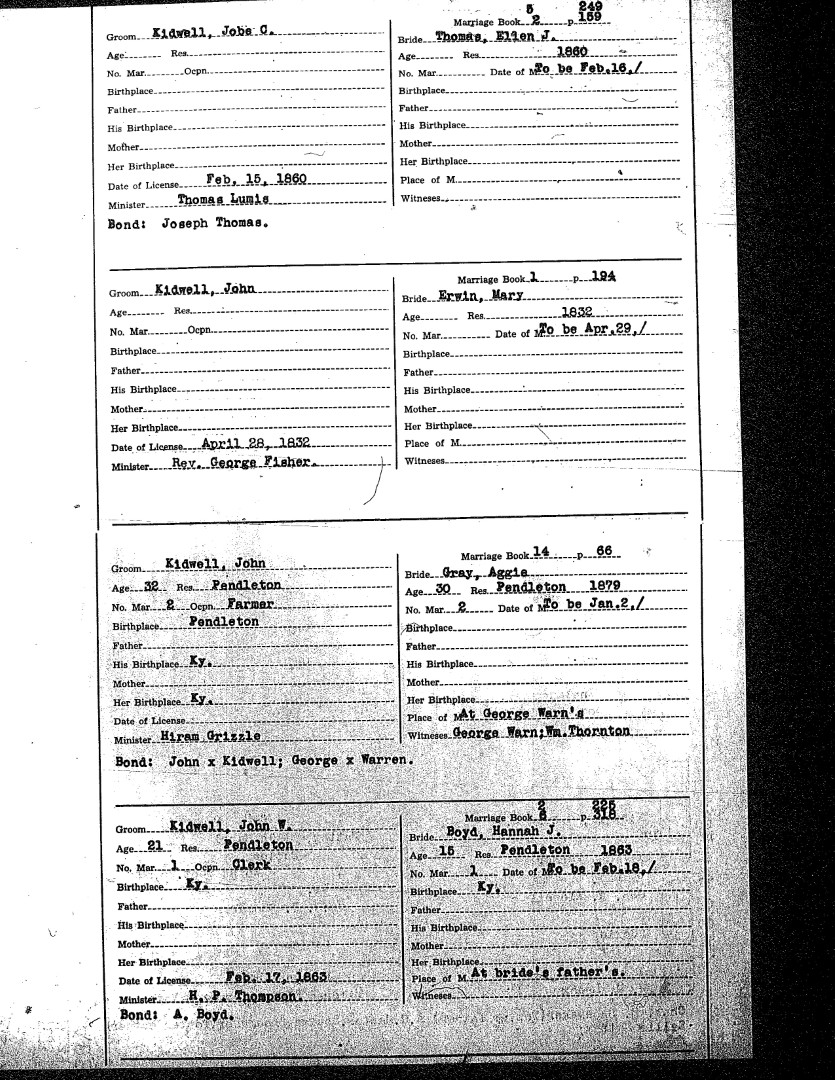 5 249
Marriage Book 2 p. 159
Groom Kidwell, Jobe C.
Bride Thomas, Ellen J.
Age Res.
Age Res. 1860
No. Mar. Ocpn.
No. Mar. Date of M. To be Feb.16,/
Birthplace
Birthplace
Father
Father
His Birthplace
His Birthplace
Mother
Mother
Her Birthplace
Her Birthplace
Date of License Feb. 15, 1860
Place of M.
Minister Thomas Lumis
Witneses
Bond: Joseph Thomas.
Marriage Book 1 p. 194
Groom Kidwell, John
Bride Erwin, Mary
Age Res.
Age Res. 1832
No. Mar. Ocpn.
No. Mar. Date of M. To be Apr.29,/
Birthplace
Birthplace
Father
Father
His Birthplace
His Birthplace
Mother
Mother
Her Birthplace
Her Birthplace
Date of License April 28, 1832
Place of M.
Minister Rev. George Fisher.
Witneses
Marriage Book 14 p. 66
Groom Kidwell, John
Bride Gray, Aggie
Age 32 Res. Pendleton
Age 30 Res. Pendleton 1879
No. Mar. 2 Ocpn. Farmer
No. Mar. 2 Date of M. To be Jan.2,/
Birthplace Pendleton
Birthplace
Father
Father
His Birthplace Ky.
His Birthplace
Mother
Mother
Her Birthplace Ky.
Her Birthplace
Date of License
Place of M. At George Warn's
Minister Hiram Grizzle
Witneses George Warn;Wm.Thornton
Bond: John x Kidwell; George x Warren.
2 225
Marriage Book 8 p. 318
Groom Kidwell, John W.
Bride Boyd, Hannah J.
Age 21 Res. Pendleton
Age 15 Res. Pendleton 1863
No. Mar. 1 Ocpn. Clerk
No. Mar. 1 Date of M. To be Feb.18,/
Birthplace Ky.
Birthplace Ky.
Father
Father
His Birthplace
His Birthplace
Mother
Mother
Her Birthplace
Her Birthplace
Date of License Feb. 17, 1863
Place of M. At bride's father's.
Minister H. P. Thompson.
Witneses
Bond: A. Boyd.